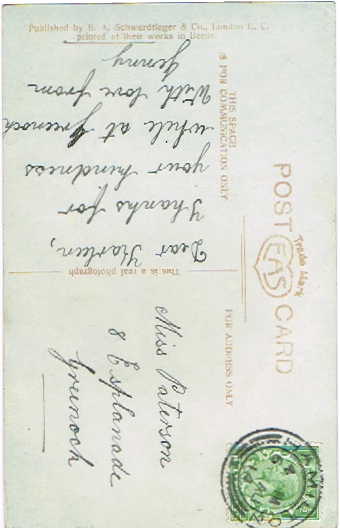 Published by E. A. Schwerdtfeger & Co., London E. C.
printed at their works in Berlin
POST CARD
Trade Mark
EAS
THIS SPACE
IS FOR COMMUNICATION ONLY
FOR ADDRESS ONLY
This is a real photograph
Dear
Thanks for
your kindness
while at Greenock
With love from
Jenny
Miss Paterson
8 Esplanade
Greenock